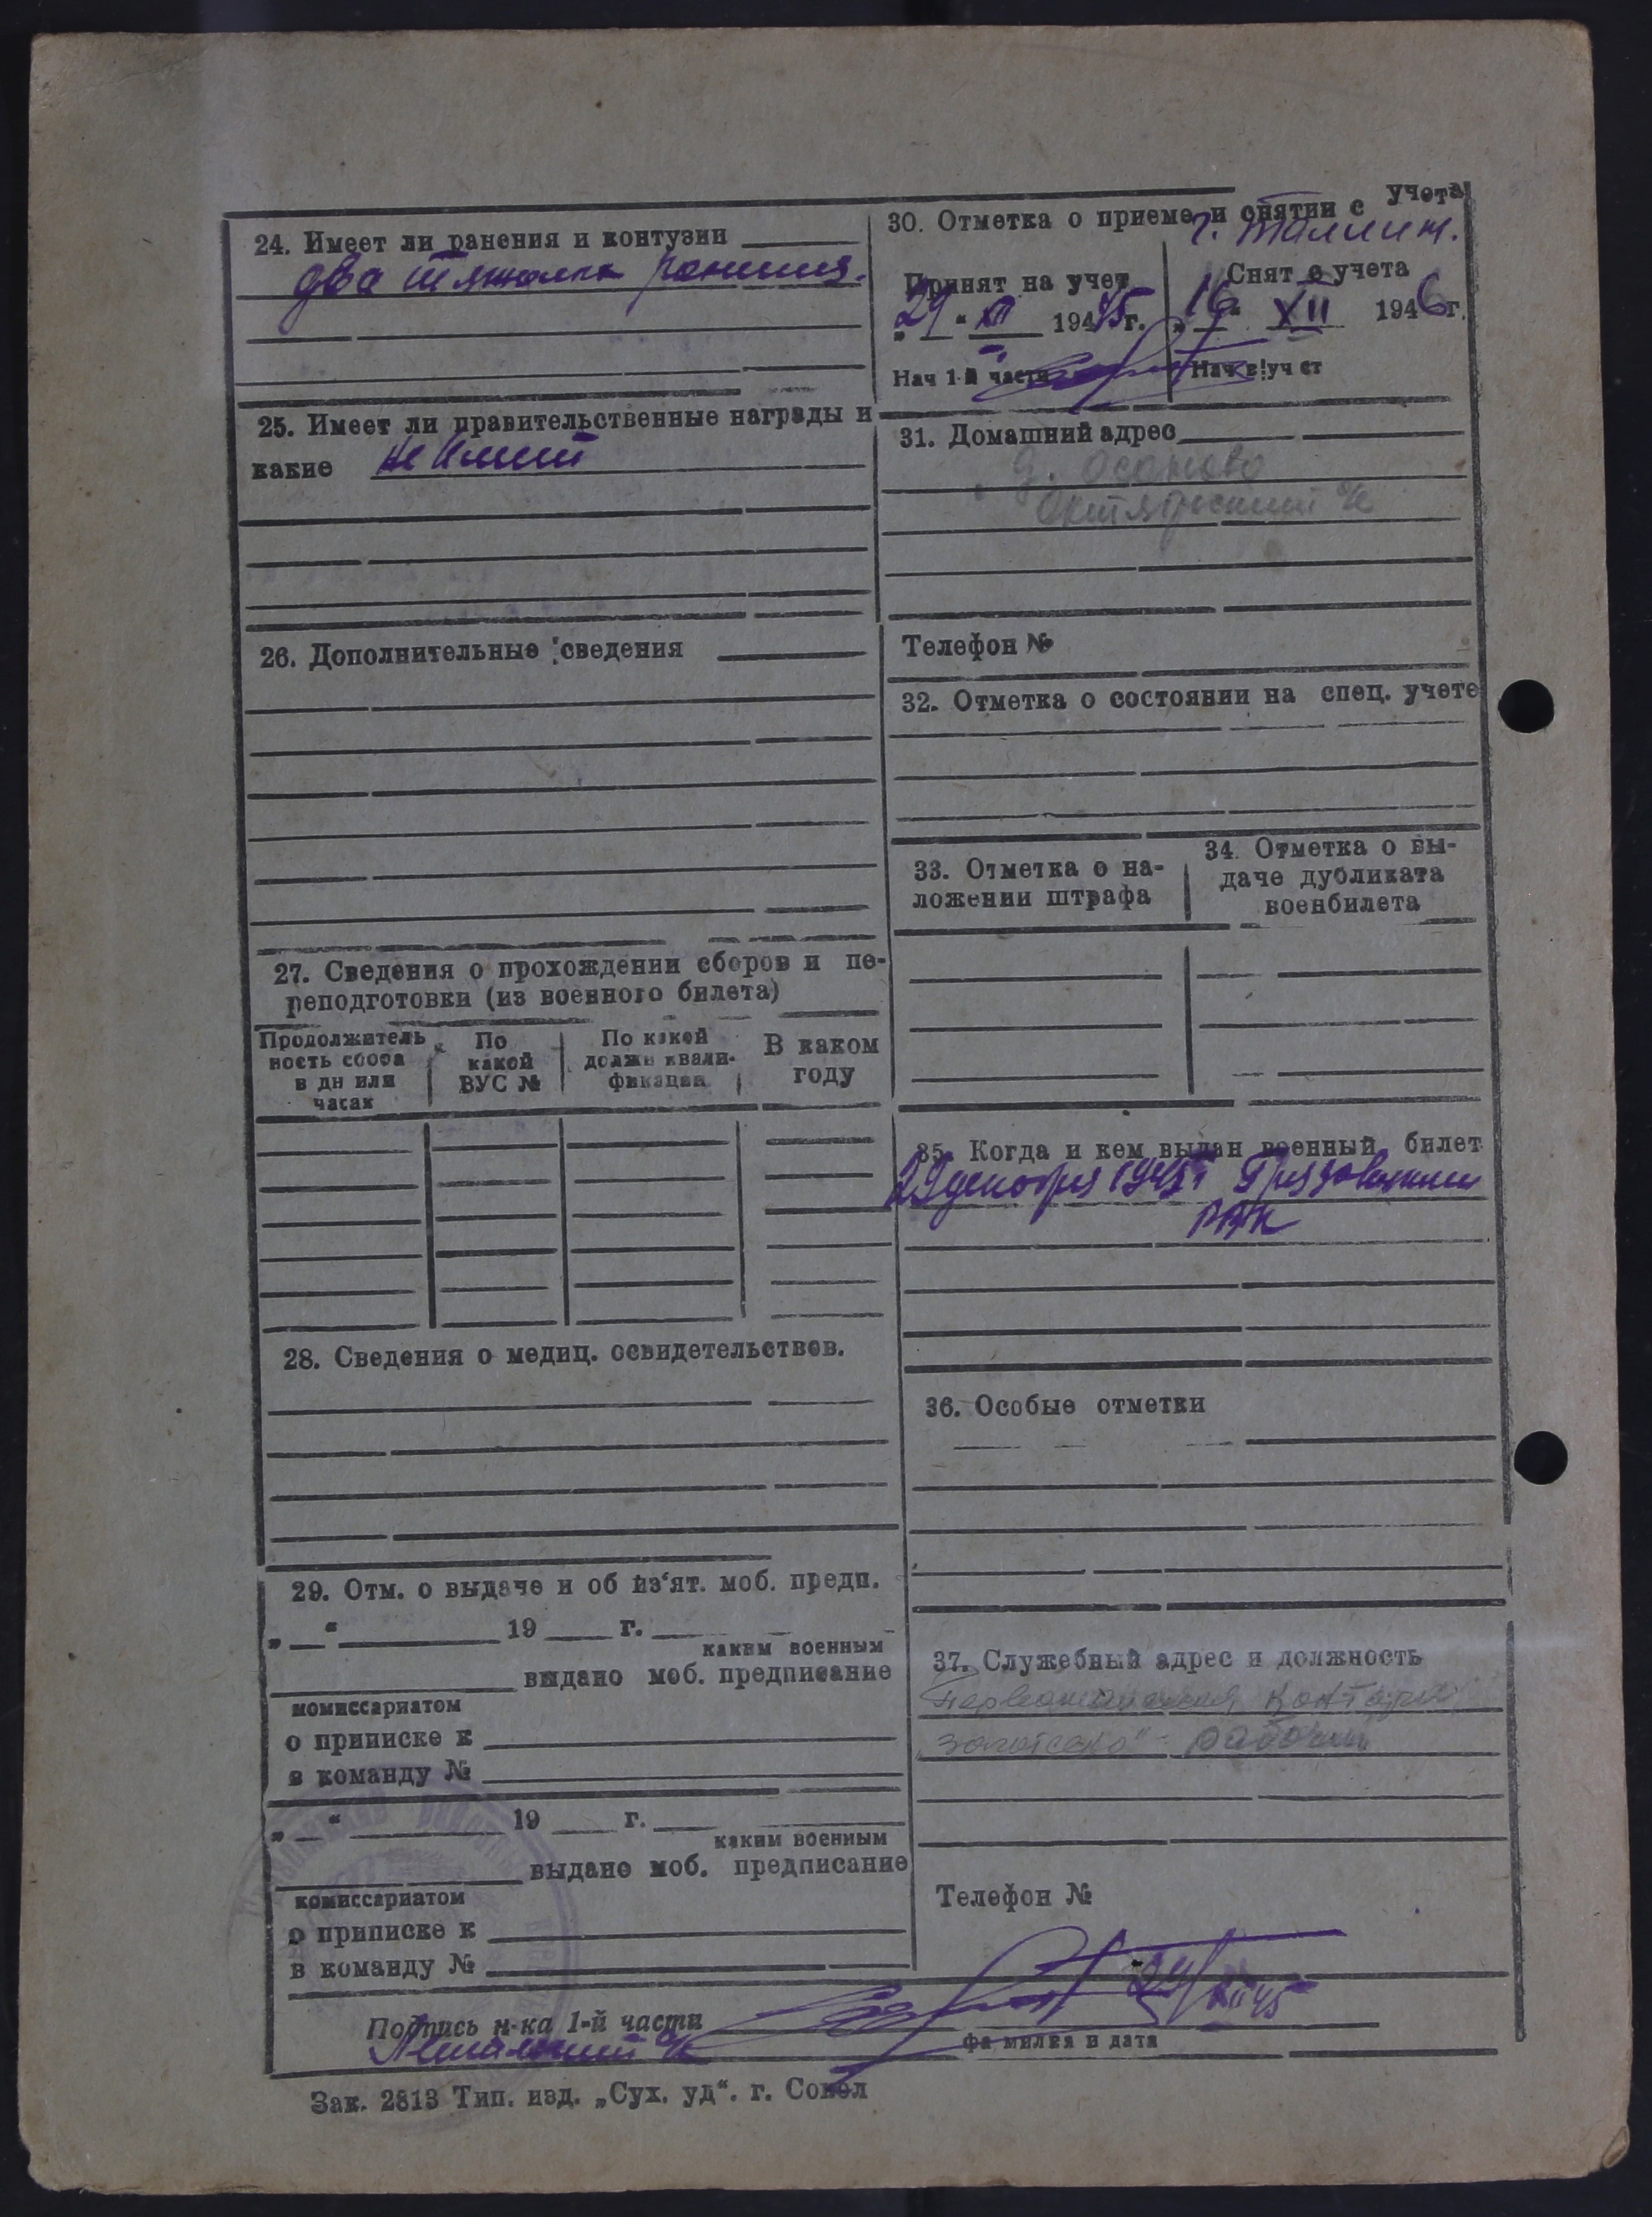 24. Имеет ли ранения и контузии
два тяжелых ранения.
25. Имеет ли правительственные награды и
какие не имеет
26. Дополнительные сведения
27. Сведения о прохождении сборов и пе-
реподготовки (из военного билета)
Продолжитель
ность сбора
в дн или
часах
По
какой
ВУС №
По какой
должн квали-
фикации
В каком
году
28. Сведения о медиц. освидетельствов.
29. Отм. о выдаче и об из‘ят. моб. предп.
„ “ 19 г.
каким военным
выдано моб. предписание
комиссариатом
о приписке к
в команду №
„ “ 19 г.
каким военным
выдано моб. предписание
комиссариатом
о приписке к
в команду №
30. Отметка о приеме и снятии с учета
г. Таллин.
Принят на учет
„29“ XII 1945г.
Нач 1-й части
Снят с учета
„16“ XII 1946г.
Нач в!уч ет
31. Домашний адрес
д. Осаново
Октябрьский с/с
Телефон №
32. Отметка о состоянии на спец. учете
33. Отметка о на-
ложении штрафа
34. Отметка о вы-
даче дубликата
военбилета
35. Когда и кем выдан военный билет
29 декабря 1945г Грязовецким
РВК
36. Особые отметки
37. Служебный адрес и должность
контора
рабочий
Телефон №
Подпись н-ка 1-й части
29/XII 45
фамилия и дата
Зак. 2813 Тип. изд. „Сух. уд“. г. Сокол